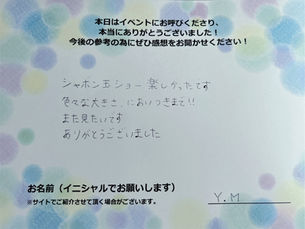 本日はイベントにお呼びくださり、
本当にありがとうございました！
今後の参考の為にぜひ感想をお聞かせください！
シャボン玉ショー楽しかったです
色々な大きさ、においつきまで!!
また見たいです
ありがとうございました
お名前（イニシャルでお願いします）
Y.M
※サイトでご紹介させて頂く場合がございます。